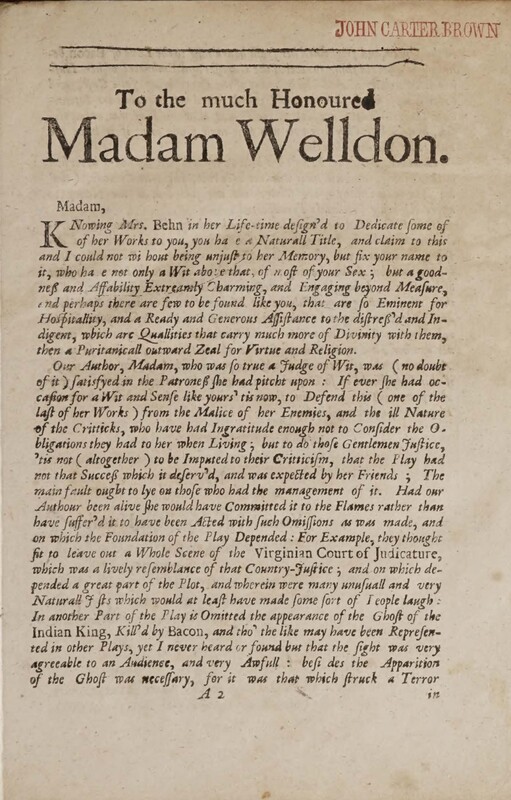 JOHN CARTER BROWN
To the much Honoured
Madam Welldon.
Madam,
KNowing Mrs. Behn in her Life-time deſign'd to Dedicate ſome of
of her Works to you, you ha e a Naturall Title, and claim to this
and I could not wi hout being unjuſt to her Memory, but fix your name to
it, who ha e not only a Wit above that, of moſt of your Sex ; but a good-
neſs and Affability Extreamly Charming, and Engaging beyond Meaſure,
and perhaps there are few to be found like you, that are ſo Eminent for
Hoſpitallity, and a Ready and Generous Aſſiſtance to the diſtreſs'd and In-
digent, which are Quallities that carry much more of Divinity with them,
then a Puritanicall outward Zeal for Virtue and Religion.
Our Author, Madam, who was ſo true a Judge of Wit, was ( no doubt
of it ) ſatisfyed in the Patroneſs ſhe had pitcht upon : If ever ſhe had oc-
caſion for a Wit and Senſe like yours 'tis now, to Defend this ( one of the
laſt of her Works ) from the Malice of her Enemies, and the ill Nature
of the Critticks, who have had Ingratitude enough not to Conſider the O-
bligations they had to her when Living ; but to do thoſe Gentlemen Juſtice,
'tis not ( altogether ) to be Imputed to their Critticiſm, that the Play had
not that Succeſs which it deſerv'd, and was expected by her Friends ; The
main fault ought to lye on thoſe who had the management of it. Had our
Authour been alive ſhe would have Committed it to the Flames rather than
have ſuffer'd it to have been Acted with ſuch Omiſſions as was made, and
on which the Foundation of the Play Depended : For Example, they thought
fit to leave out a Whole Scene of the Virginian Court of Judicature,
which was a lively reſemblance of that Country-Juſtice ; and on which de-
pended a great part of the Plot, and wherein were many unuſuall and very
Naturall J ſts which would at leaſt have made ſome ſort of People laugh :
In another Part of the Play is Omitted the appearance of the Ghoſt of the
Indian King, Kill'd by Bacon, and tho' the like may have been Repreſen-
ted in other Plays, yet I never heard or found but that the ſight was very
agreeable to an Audience, and very Awfull : beſi des the Apparition
of the Ghoſt was neceſſary, for it was that which ſtruck a Terror
A 2 in